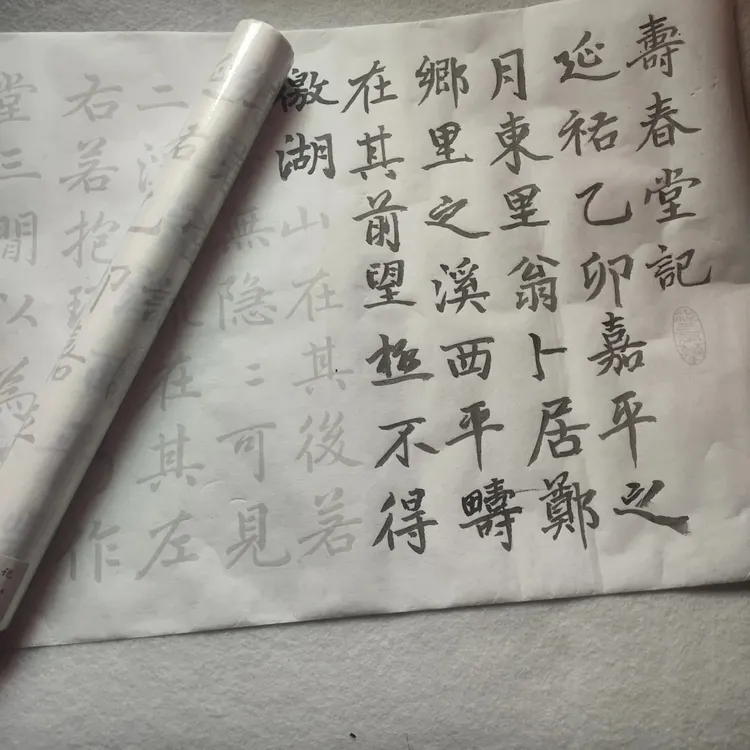 壽春堂記
延祐乙卯嘉平之
月東里翁卜居鄭
鄉里之溪西平疇
在其前望極不得
徼湖山在其後若
無隐〻可見
二在其左
右若抱作
堂三間以為
记